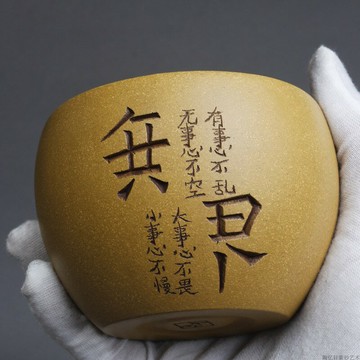 無畏
有事心不乱
无事心不空
大事心不畏
小事心不慢